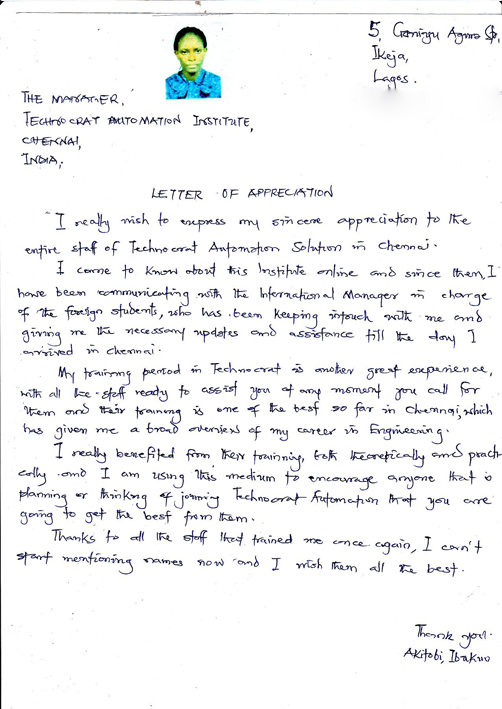 5, Ganiyu Agoro St,
Ikeja,
Lagos.
THE MANAGER,
TECHNOCRAT AUTOMATION INSTITUTE,
CHENNAI,
INDIA,
LETTER OF APPRECIATION
I really wish to express my sincere appreciation to the
entire staff of Technocrat Automation Solution in Chennai.
I came to know about this Institute online and since then, I
have been communicating with the International Manager in charge
of the foreign students, who has been keeping intouch with me and
giving me the necessary updates and assistance till the day I
arrived in Chennai.
My training period in Technocrat is another great experience,
with all the staff ready to assist you at any moment you call for
them and their training is one of the best so far in Chennai, which
has given me a broad overview of my career in Engineering.
I really benefited from their training, both theoretically and practi-
cally and I am using this medium to encourage anyone that is
planning or thinking of joining Technocrat Automation that you are
going to get the best from them.
Thanks to all the staff that trained me once again, I can't
start mentioning names now and I wish them all the best.
Thank you.
Akitobi,